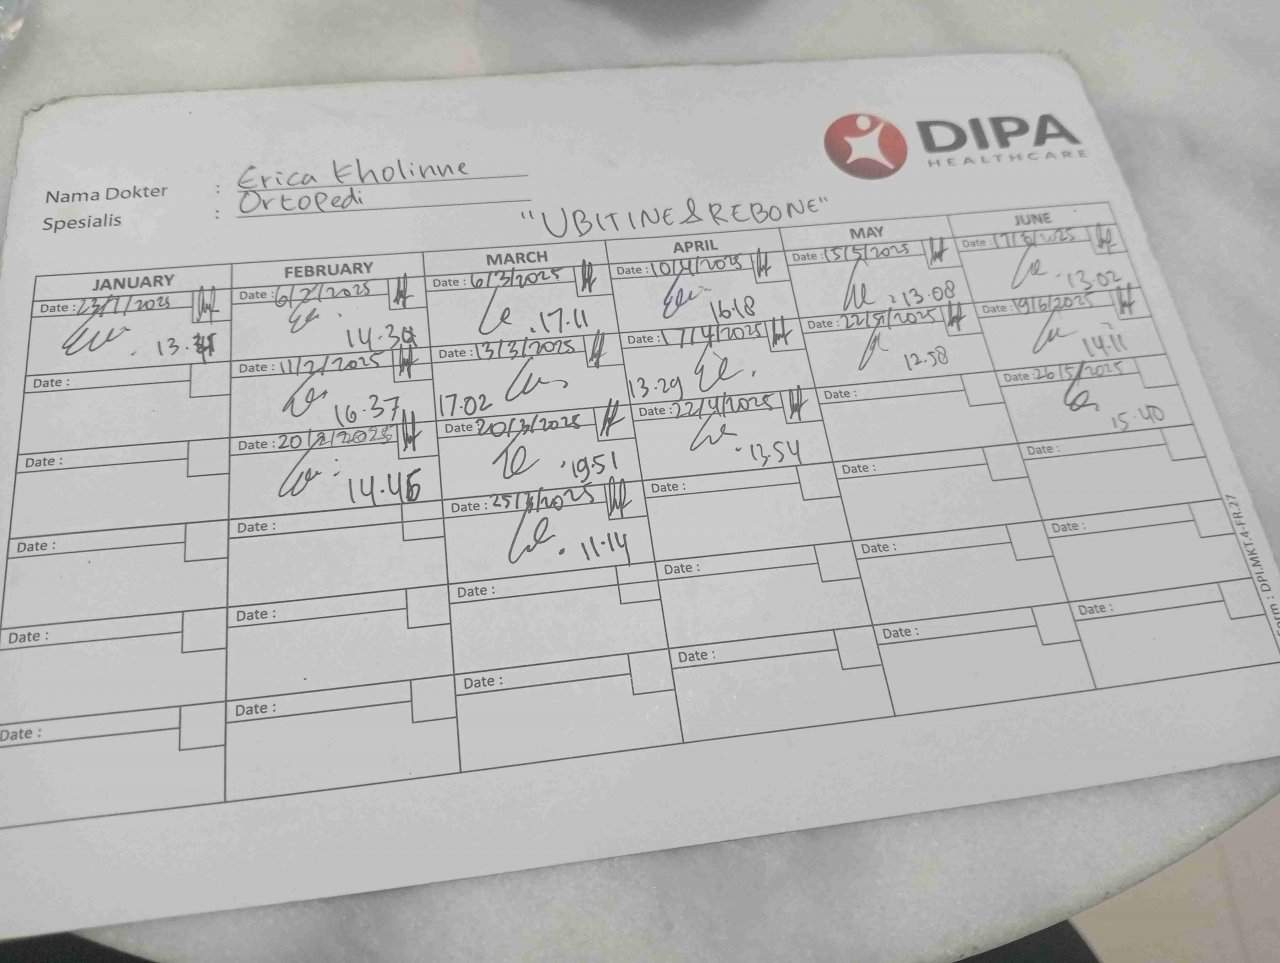 DIPA
HEALTHCARE
Nama Dokter : Erica Kholinne
Spesialis : Ortopedi
"UBITINE & REBONE"
JANUARY FEBRUARY MARCH APRIL MAY JUNE
Date : 23/1/2025 Date : 6/2/2025 Date : 6/3/2025 Date : 10/4/2025 Date : 15/5/2025 Date : 17/6/2025
13. 14.30 .17.11 16.18 .13.08 .13.02
Date : Date : 11/2/2025 Date : 13/3/2025 Date : 17/4/2025 Date : 22/5/2025 Date : 19/6/2025
16.37 17.02 13.29 12.58 14.11
Date : Date : 20/2/2025 Date : 20/3/2025 Date : 22/4/2025 Date : Date : 26/5/2025
14.45 .19.51 .13.54 15.40
Date : Date : Date : 25/3/2025 Date : Date : Date :
.11.14
Date : Date : Date : Date : Date : Date :
Date : Date : Date : Date : Date : Date :
: DPI.MKT.4-FR.27